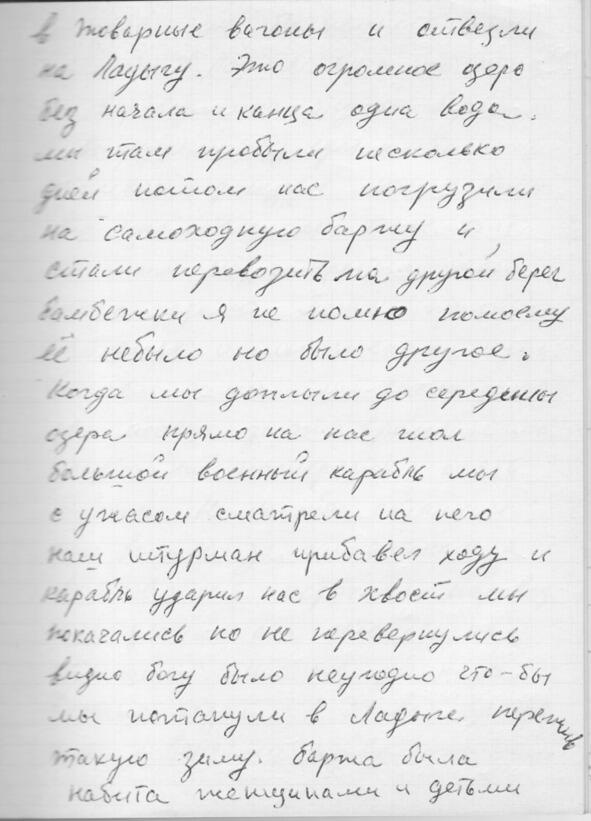 в товарные вагоны и отвезли
на Ладыгу. Это огромное озеро
без начала и канца одна вода.
мы там пробыли несколько
дней потом нас погрузили
на самоходную баржу и,
стали перевозить на другой берег
бамбежки я не помню помоему
её небыло но было другое.
Когда мы доплыли до середины
озера прямо на нас шол
большой военный карабль мы
с ужасом сматрели на него
наш штурман прибавел ходу и
карабль ударил нас в хвост мы
покачались но не перевернулись
видно богу было неугодно что-бы
мы потанули в Ладыге. пережив
такую зиму. баржа была
набита женщинами и детьми